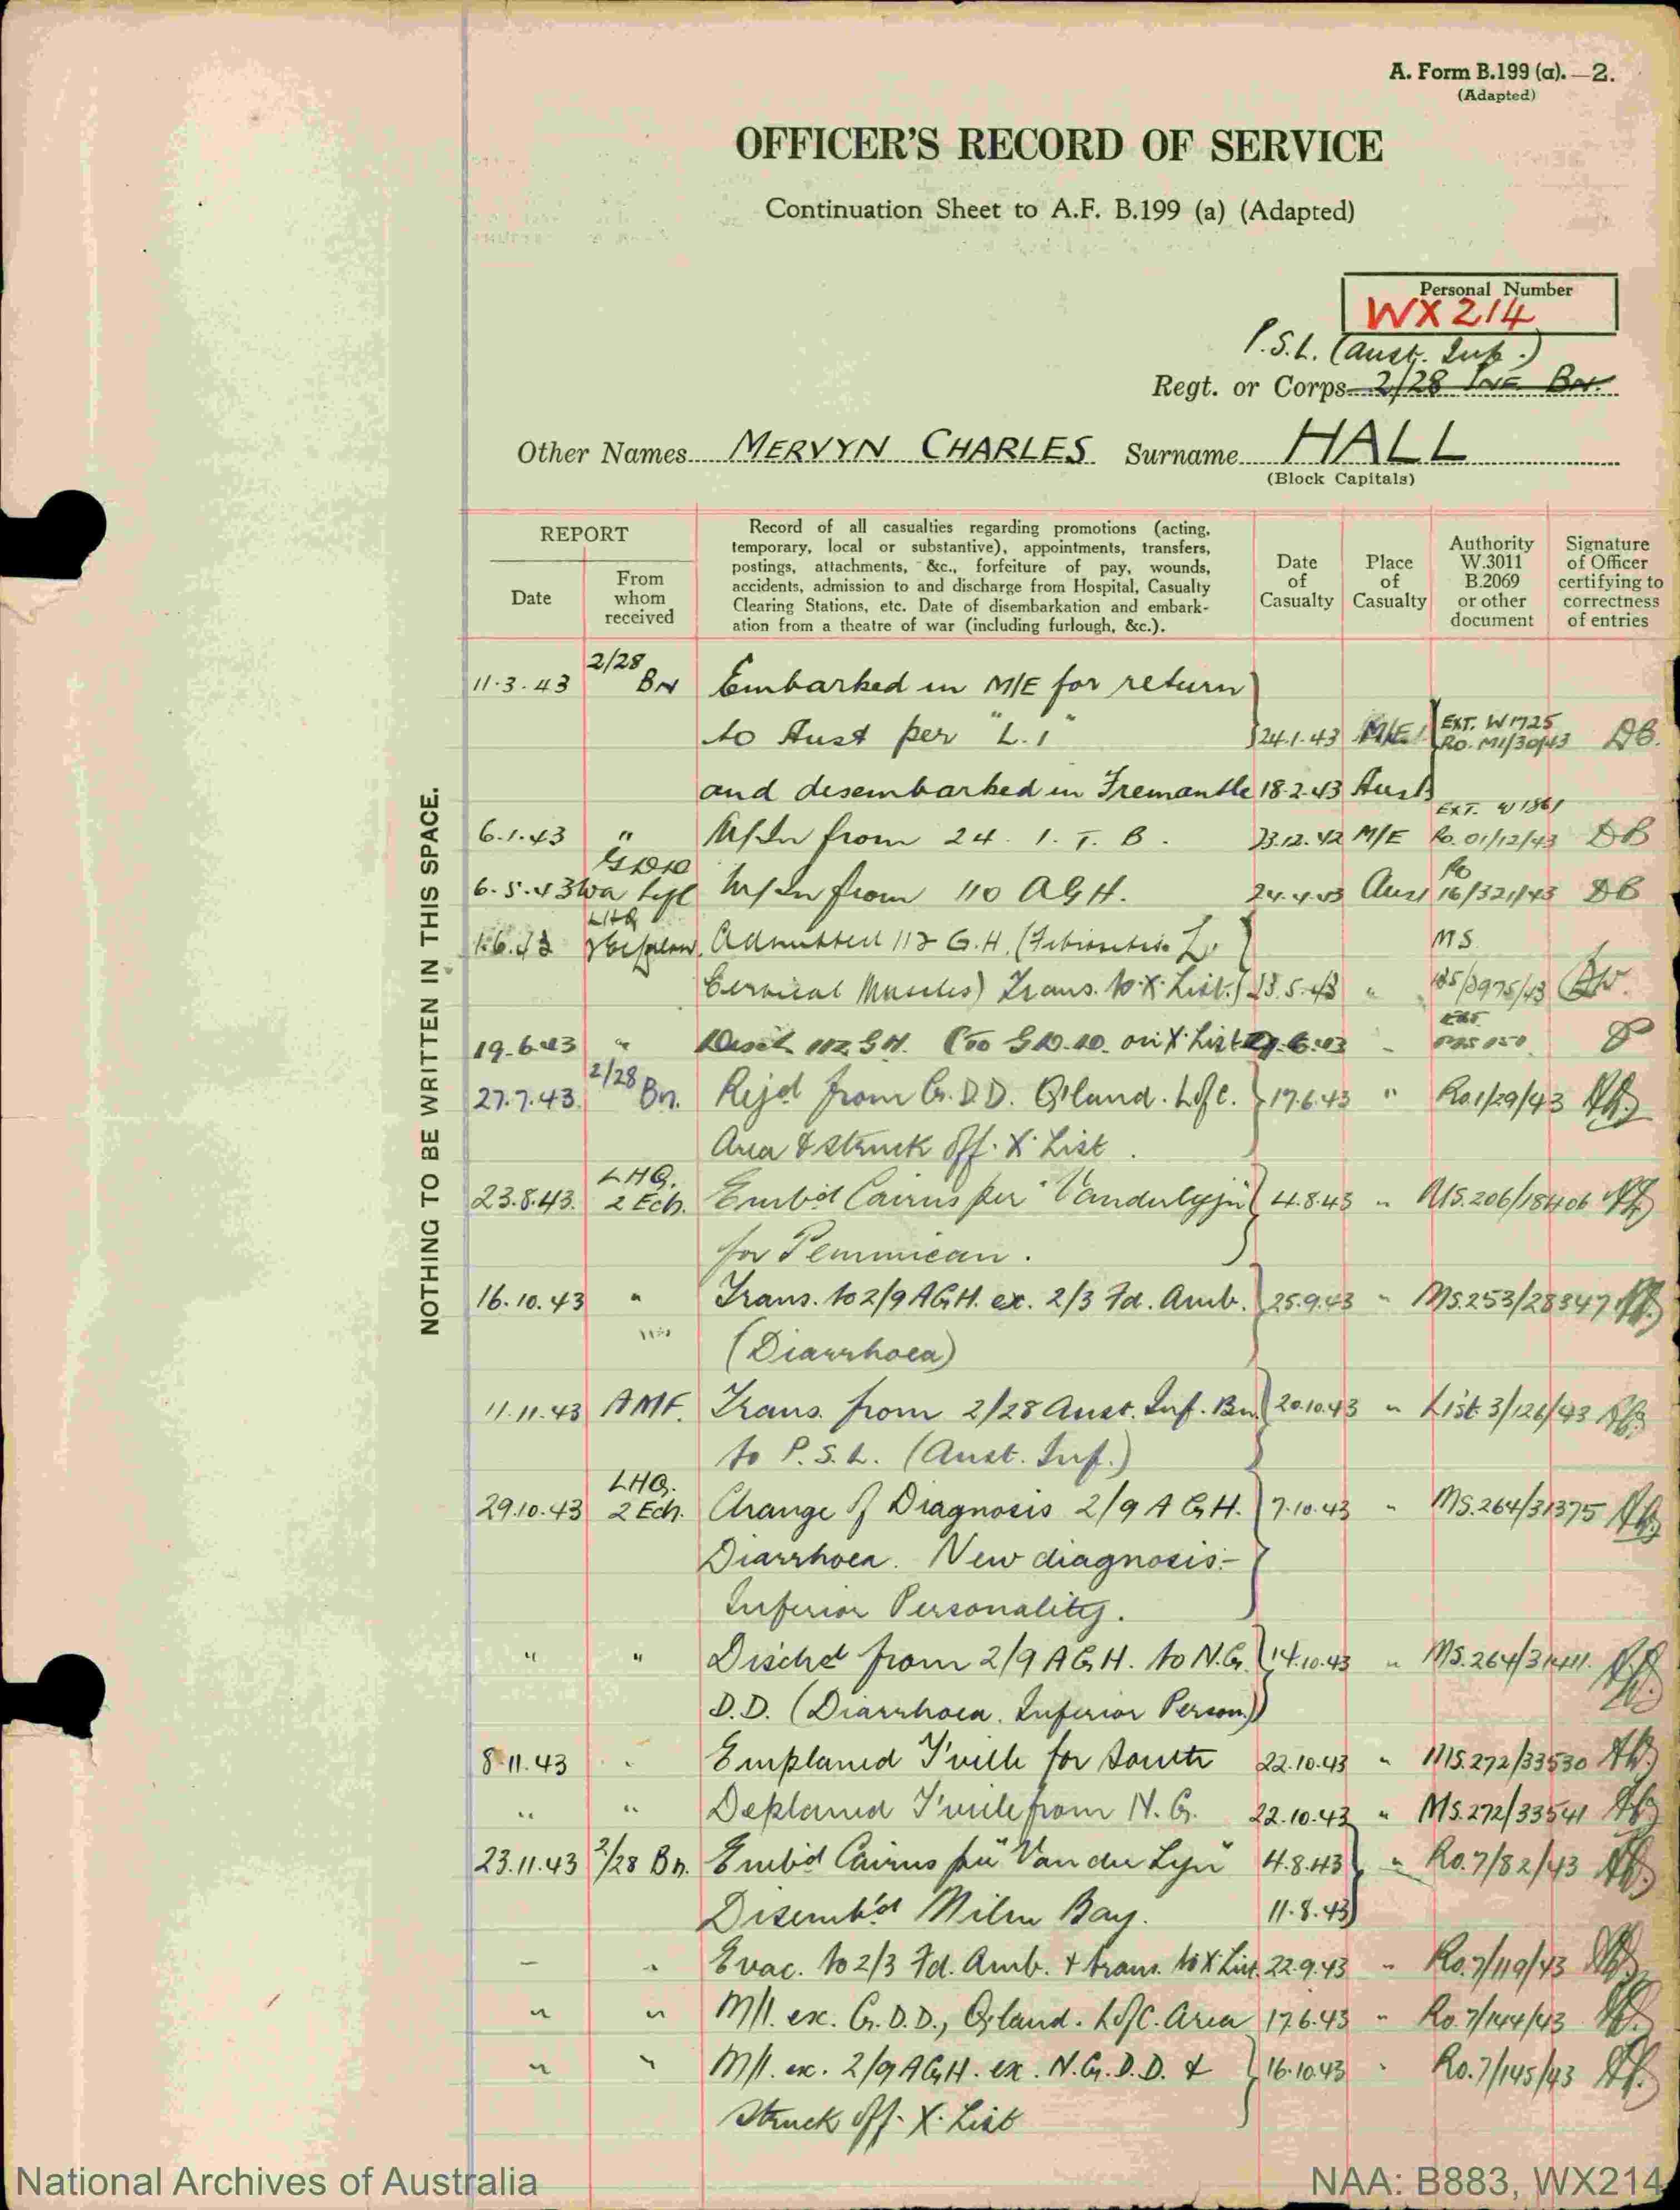 A. Form B.199 (a).—2.
(Adapted)
OFFICER'S RECORD OF SERVICE
Continuation Sheet to A.F. B.199 (a) (Adapted)
Personal Number
WX 214
P.S.L. (Aust. Inf.)
Regt. or Corps 2/28 INF. BN.
Other Names MERVYN CHARLES Surname HALL
(Block Capitals)
REPORT
Date
From whom received
Record of all casualties regarding promotions (acting,
temporary, local or substantive), appointments, transfers,
postings, attachments, &c., forfeiture of pay, wounds,
accidents, admission to and discharge from Hospital, Casualty
Clearing Stations, etc. Date of disembarkation and embark-
ation from a theatre of war (including furlough, &c.).
Date of Casualty
Place of Casualty
Authority W.3011 B.2069 or other document
Signature of Officer certifying to correctness of entries
NOTHING TO BE WRITTEN IN THIS SPACE.
11.3.43 2/28 BN Embarked in M/E for return
to Aust per "L.1" 24.1.43 M/E EXT. W1725 RO. M1/30/43 DB.
and desembarked in Fremantle 18.2.43 Aust
6.1.43 " M/In from 24. I. T. B. 23.12.42 M/E EXT. W1861 Ro. 01/12/43 DB
6.5.43 GDD WA M/In from 110 AGH. 24.4.43 Aust Ro 16/321/43 DB
1.6.43 LHQ Admitted 112 G.H. (Fibrositis L.
Cervical Muscles) Trans. to X List. 23.5.43 " MS
19.6.43 " Disch 112 G.H. to G.D.D. on X List
27.7.43 2/28 Bn. Rejd from G.D.D. Qland. L of C. 17.6.43 " Ro.1/29/43
Area & struck off. X List.
23.8.43. LHQ. 2 Ech. Embd Cairns per "Vanderlyjn" 4.8.43 " MS.206/18406
for Pemmican.
16.10.43 " Trans. to 2/9 AGH. ex. 2/3 Fd. Amb. 25.9.43 " MS.253/28347
(Diarrhoea)
11.11.43 AMF. Trans. from 2/28 Aust. Inf. Bn. 20.10.43 " List 3/126/43
to P.S.L. (Aust. Inf.)
29.10.43 LHQ. 2 Ech. Change of Diagnosis 2/9 AGH. 7.10.43 " MS.264/31375
Diarrhoea. New diagnosis:-
Inferior Personality.
" " Dischd from 2/9 AGH. to N.G. 14.10.43 " MS.264/31411.
D.D. (Diarrhoea. Inferior Person.)
8.11.43 " Emplaned T'ville for South 22.10.43 " MS.272/33530
" " Deplaned T'ville from N.G. 22.10.43 " MS.272/33541
23.11.43 2/28 Bn. Embd Cairns per "Van der Lyn" 4.8.43 " Ro.7/82/43
Disemb'd Milne Bay. 11.8.43
— " Evac. to 2/3 Fd. Amb. & trans. to X List. 22.9.43 " Ro.7/119/43
" " M/I. ex. G.D.D., Qland. L of C. Area 17.6.43 " Ro.7/144/43
" " M/I. ex. 2/9 AGH. ex. N.G.D.D. & 16.10.43 " Ro.7/145/43
Struck off. X. List
National Archives of Australia
NAA: B883, WX214